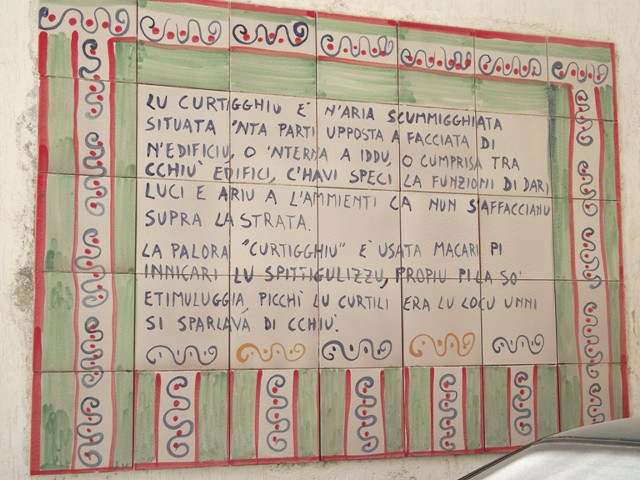 LU CURTIGGHIU E' N'ARIA SCUMMIGGHIATA
SITUATA 'NTA PARTI UPPOSTA A FACCIATA DI
N'EDIFICIU, O 'NTERNA A IDDU, O CUMPRISA TRA
CCHIU' EDIFICI, C'HAVI SPECI LA FUNZIONI DI DARI
LUCI E ARIU A L'AMMIENTI CA NUN S'AFFACCIANU
SUPRA LA STRATA.
LA PALORA "CURTIGGHIU" E' USATA MACARI PI
INNICARI LU SPITTIGULIZZU, PROPIU PI LA SO'
ETIMULUGGIA, PICCHÌ LU CURTILI ERA LU LOCU UNNI
SI SPARLAVA DI CCHIU'.